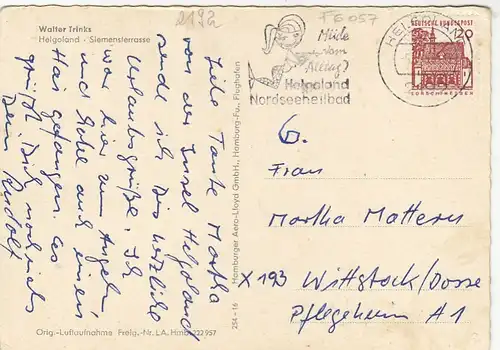 2192
FG 057
Walter Trinks
Helgoland · Siemensterrasse
Müde
vom
Alltag?
Helgoland
Nordseeheilbad
HELGOLAND
DEUTSCHE BUNDESPOST
20
LORSCH/HESSEN
Liebe Tante Martha
von der Insel Helgoland
sende ich Dir herzliche
Urlaubsgrüße. Ich
war hier zum Angeln
und habe auch einen
Hai gefangen. Es
grüßt Dich nochmals
Dein Rudolf
Hamburger Aero-Lloyd GmbH., Hamburg-Fu., Flughafen
254 - 16
Orig.-Luftaufnahme Freig.-Nr. L.A. Hmb. 222957
6.
Frau
Martha Mattern
X 193 Wittstock/Dosse
Pflegeheim A1